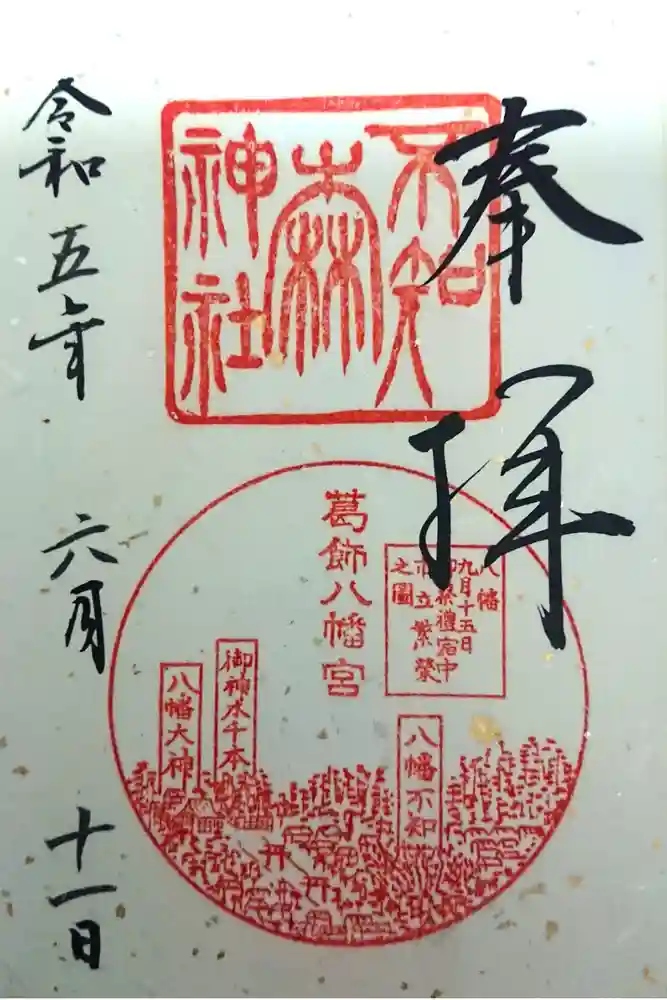 奉拝
不知
森
神社
葛飾八幡宮
八幡
九月十五日
御祭禮宿中
市立繁榮
之圖
八幡不知
御神木千本
八幡大神
令和五年 六月 十一日